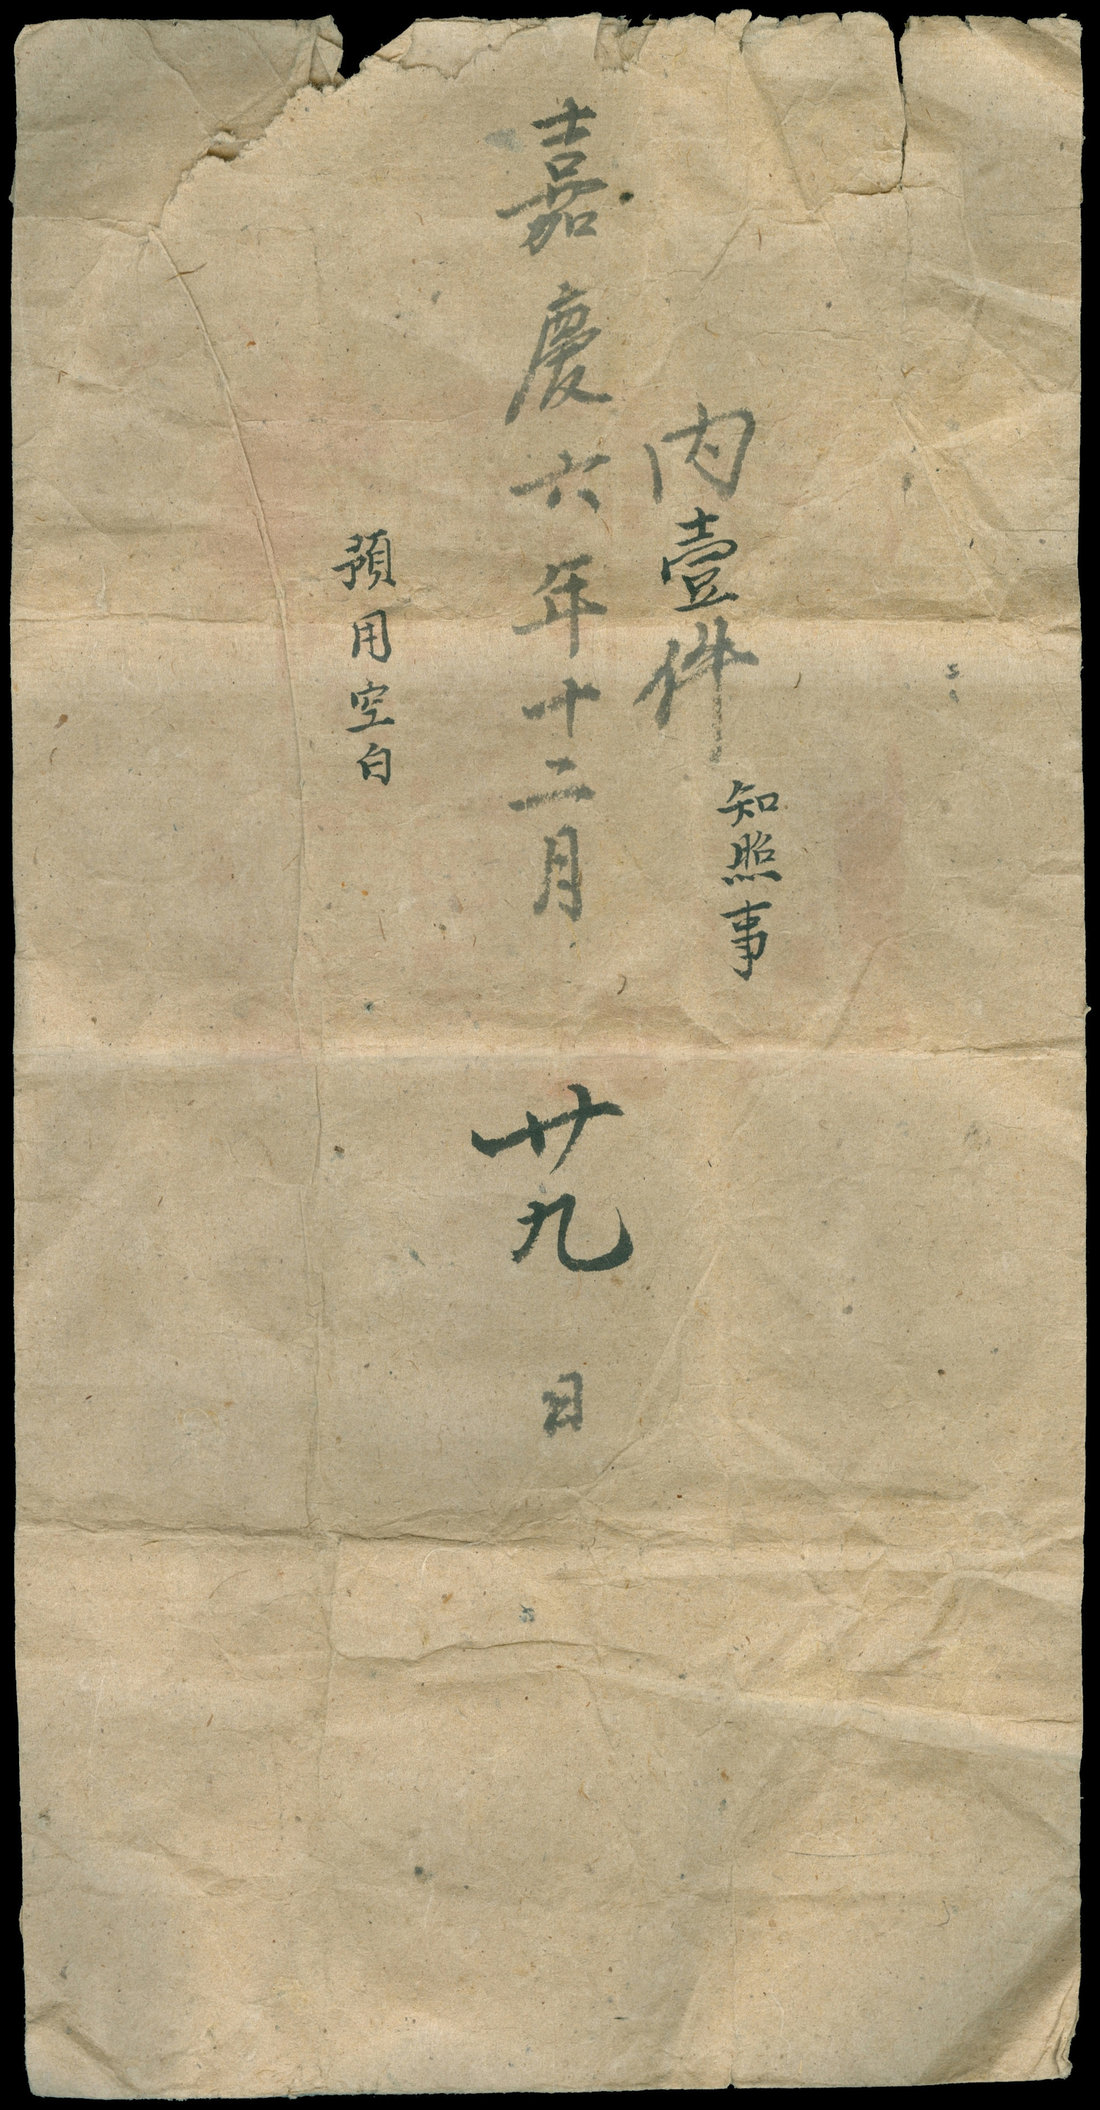 內壹件
知照事
嘉慶六年十二月廿九日
預用空白